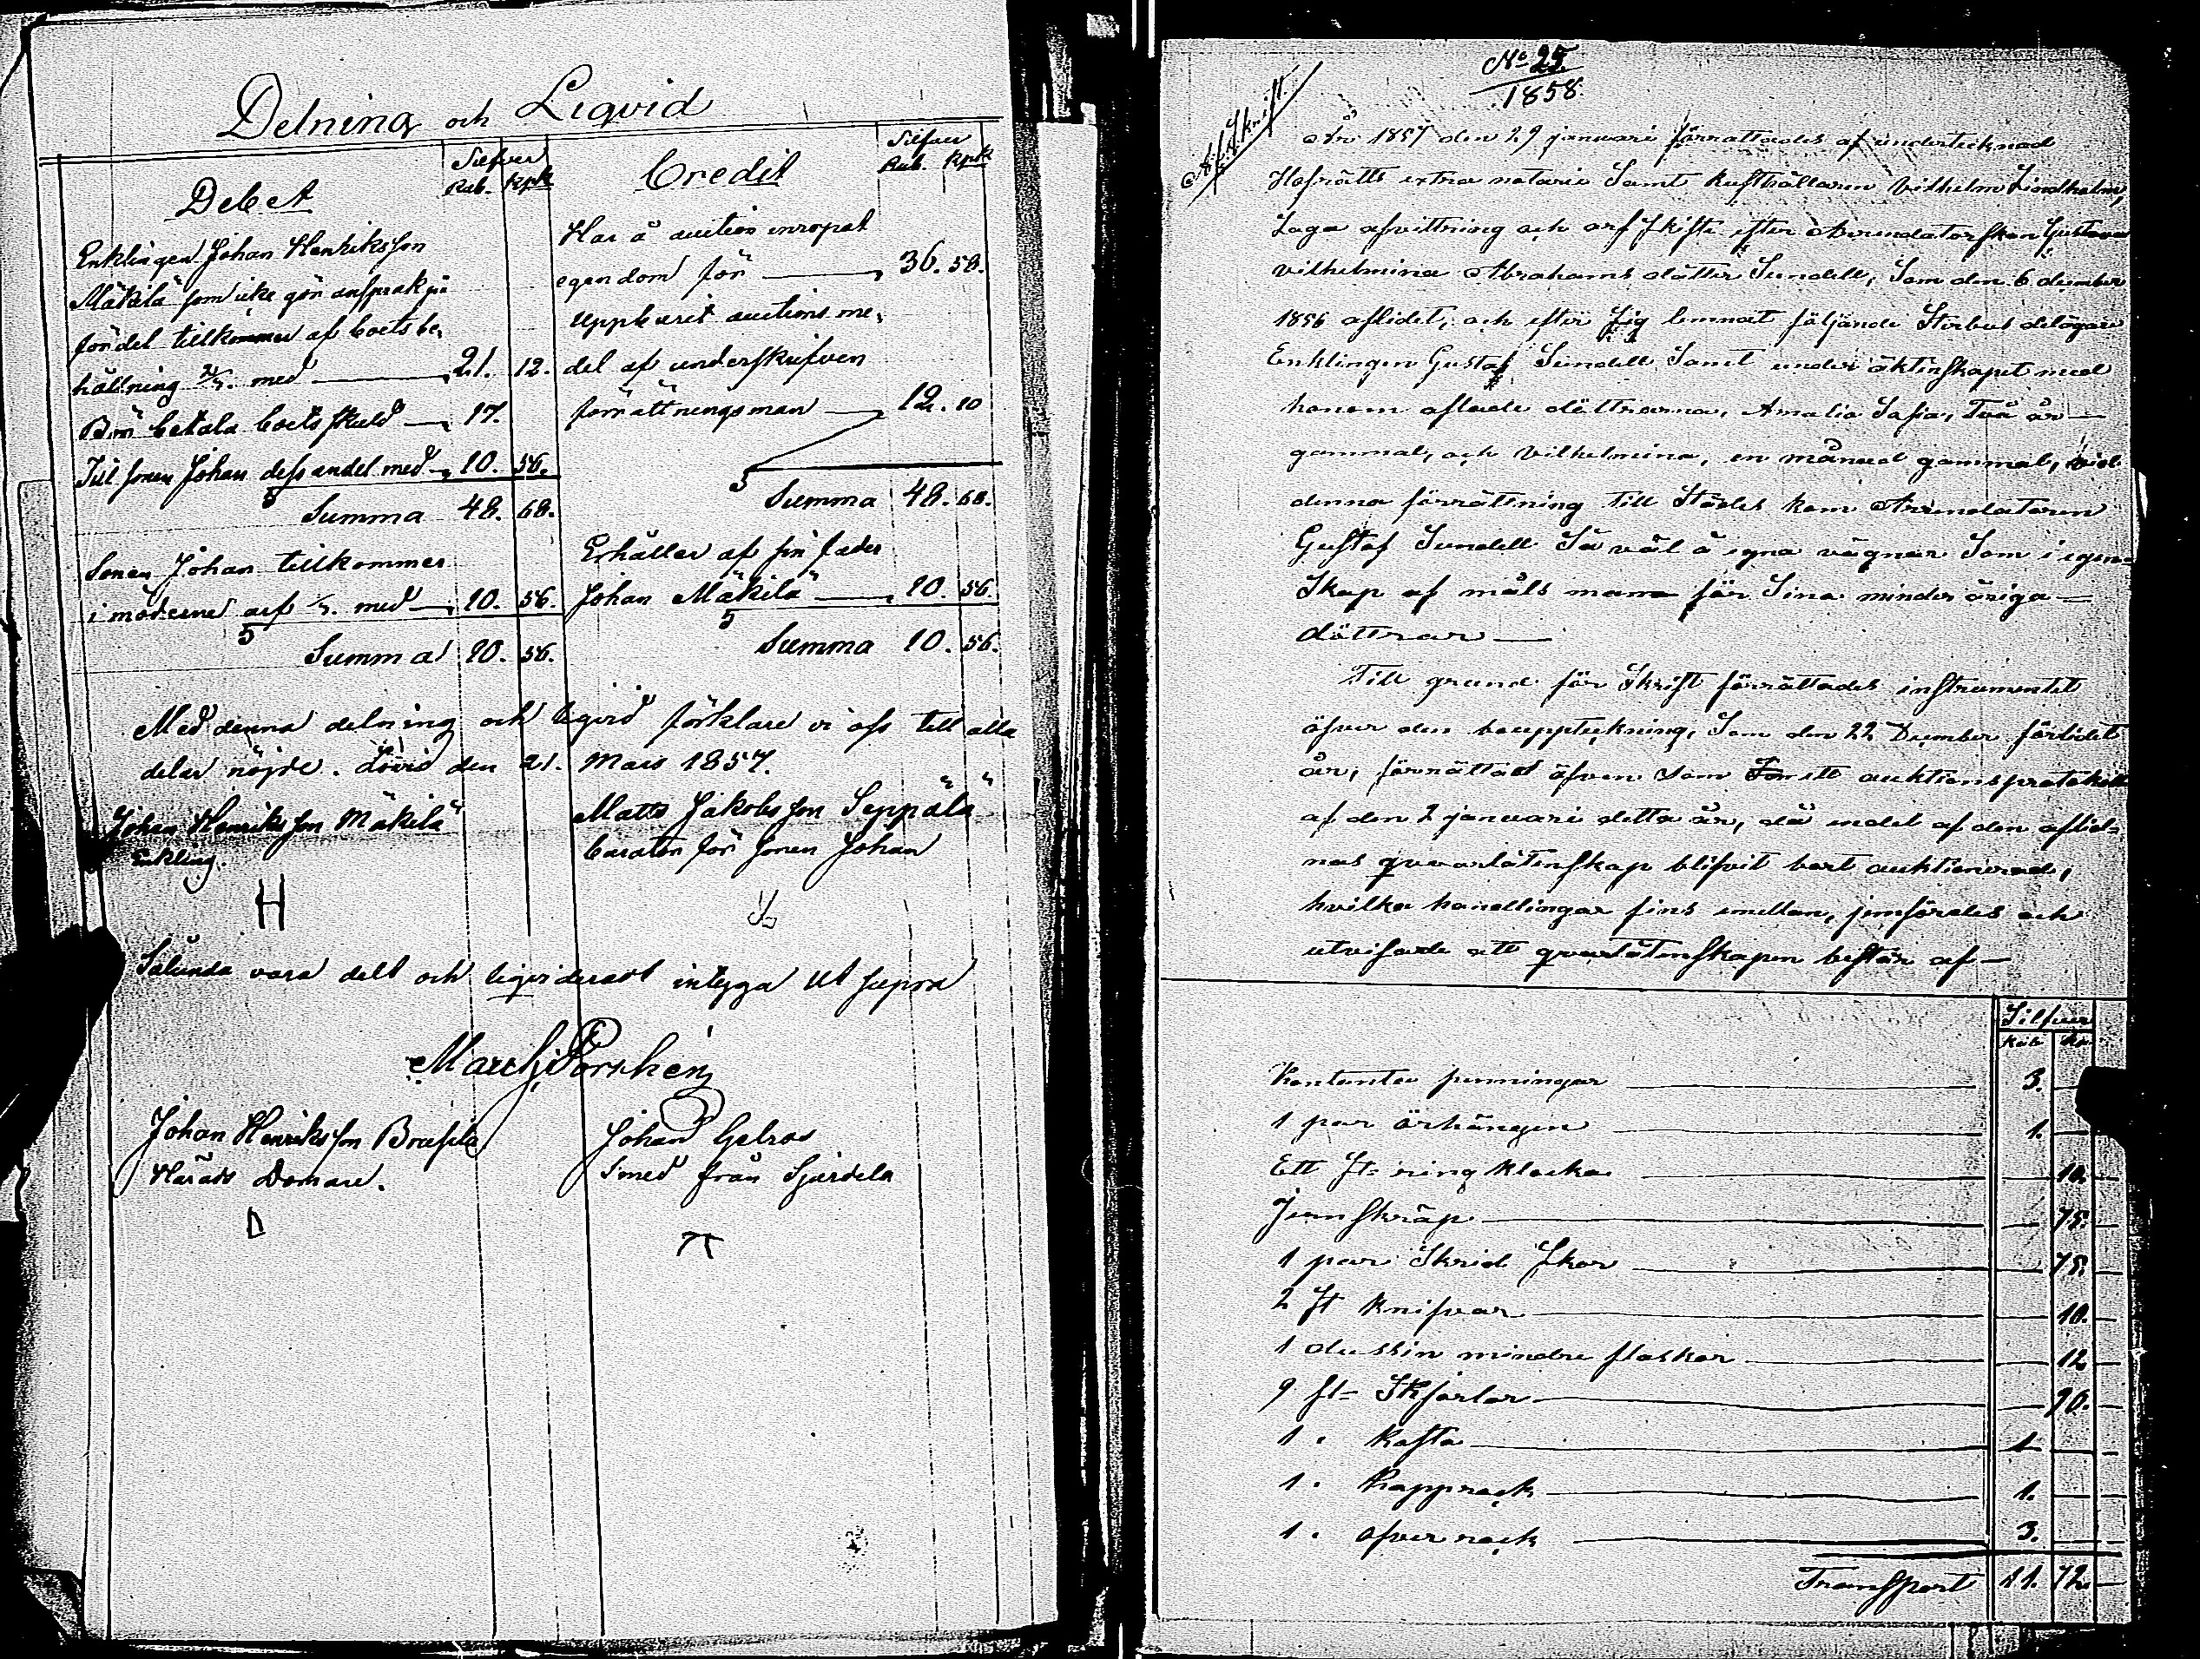 Delning och Liqvid
Debet
Silfver
Rub. Kpk
Enklingen Johan Henriksson
Mäkilä som icke gör anspråk på
fördel tillkommer af boets be-
hållning 2/3. med 21. 12.
Bör betala boets skuld 17.
Till sonen Johan dess andel med 10. 56.
Summa 48. 68.
Sonen Johan tillkommer
i möderne arf 1/3. med 10. 56.
Summa 10. 56.
Credit
Silfver
Rub. Kpk
Har å auction inropat
egendom för 36. 58.
Uppburit auctions me-
del af underskrifven
förrättningsman 12. 10
Summa 48. 68.
Erhåller af sin fader
Johan Mäkilä 10. 56.
Summa 10. 56.
Med denna delning och liqvid förklare vi oss till alla
delar nöjde. den 21. Mars 1857.
Johan Henriksson Mäkilä
Enkling.
H
Matts Jakobsson Seppälä
Curator för sonen Johan
Sålunda vara delt och liqvideradt intyga Ut supra
Johan Henriksson
Härads Domare.
Johan
Smed från
No 25
1858
Afskrift
År 1857 den 29 januari förrättades af undertecknad
Hofrätts extra notarie Samt Lindholm,
Laga afvittring och arf Skifte efter Arrendatorskan Gustava
Vilhelmina Abrahams dotter Sundell, Som den 6 december
1856 aflidit, och efter Sig lemnat följande Sterbhus delägare
Enklingen Gustaf Sundell Samt under äktenskapet med
honom aflade döttrarna, Amalia Sofia, Två år
gammal, och Vilhelmina, en månad gammal, vid
denna förrättning till Städes kom Arrendatorn
Gustaf Sundell Så väl å egna vägnar Som i egen-
Skap af måls man för Sina minder åriga
döttrar
Till grund för Skrift förrättades instrumentet
öfver den bouppteckning, Som den 22 December förlidet
år, förrättad äfven Som ett auktionsprotokoll
af den 2 januari detta år, då endel af den aflid-
nas qvarlåtenskap blifvit bort auktionerad,
hvilka handlingar fins emellan, jemfördes och
utvisade att qvarlåtenskapen består af
Silfver
Rub. Kop.
Kontanta penningar 3.
1 par örhängen 1.
Ett st ring klocka 10.
Jern skräp 75.
1 par Skrid Skor 75.
2 st knifvar 10.
1 dussin mindre flaskor 12
9 st 90.
1 " Kofta 1
1 " Kapprock 1.
1 " öfver rock 3.
Transport 11. 72.